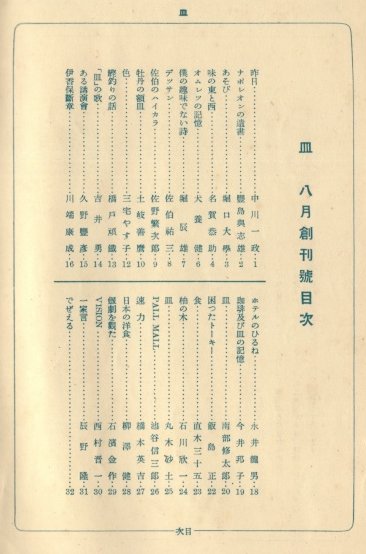 皿
皿 八月創刊號目次
昨日……中川一政・1
ナポレオンの遺書……豐島與志雄・2
あそび……堀口大學・3
味の東と西……名賀泰助・4
オムレツの記憶……犬養健・6
僕の趣味でない詩……堀辰雄・7
デッサン……佐伯祐三・8
佐伯のハイカラ……佐野繁次郎・9
牡丹の額皿……土岐善麿・10
色……三宅やす子・12
鰹釣りの話……橋戸頑鐵・13
「皿」の歌……吉井勇・14
ある講演會……久野豐彦・15
伊香保斷章……川端康成・16
ホテルのひるね……永井龍男・18
珈琲及び皿の記憶……今井邦子・19
皿……南部修太郎・20
困つたトーキー……飯島正・22
食……直木三十五・23
柏の木……石川欣一・24
皿……丸木砂土・25
PALL MALL……池谷信三郎・26
速力……橋本英吉・27
日本の洋食……柳澤健・28
假劇を觀た……石濱金作・29
VISION……西村晋一・30
一家言……辰野隆・31
でぜえる……32
目次